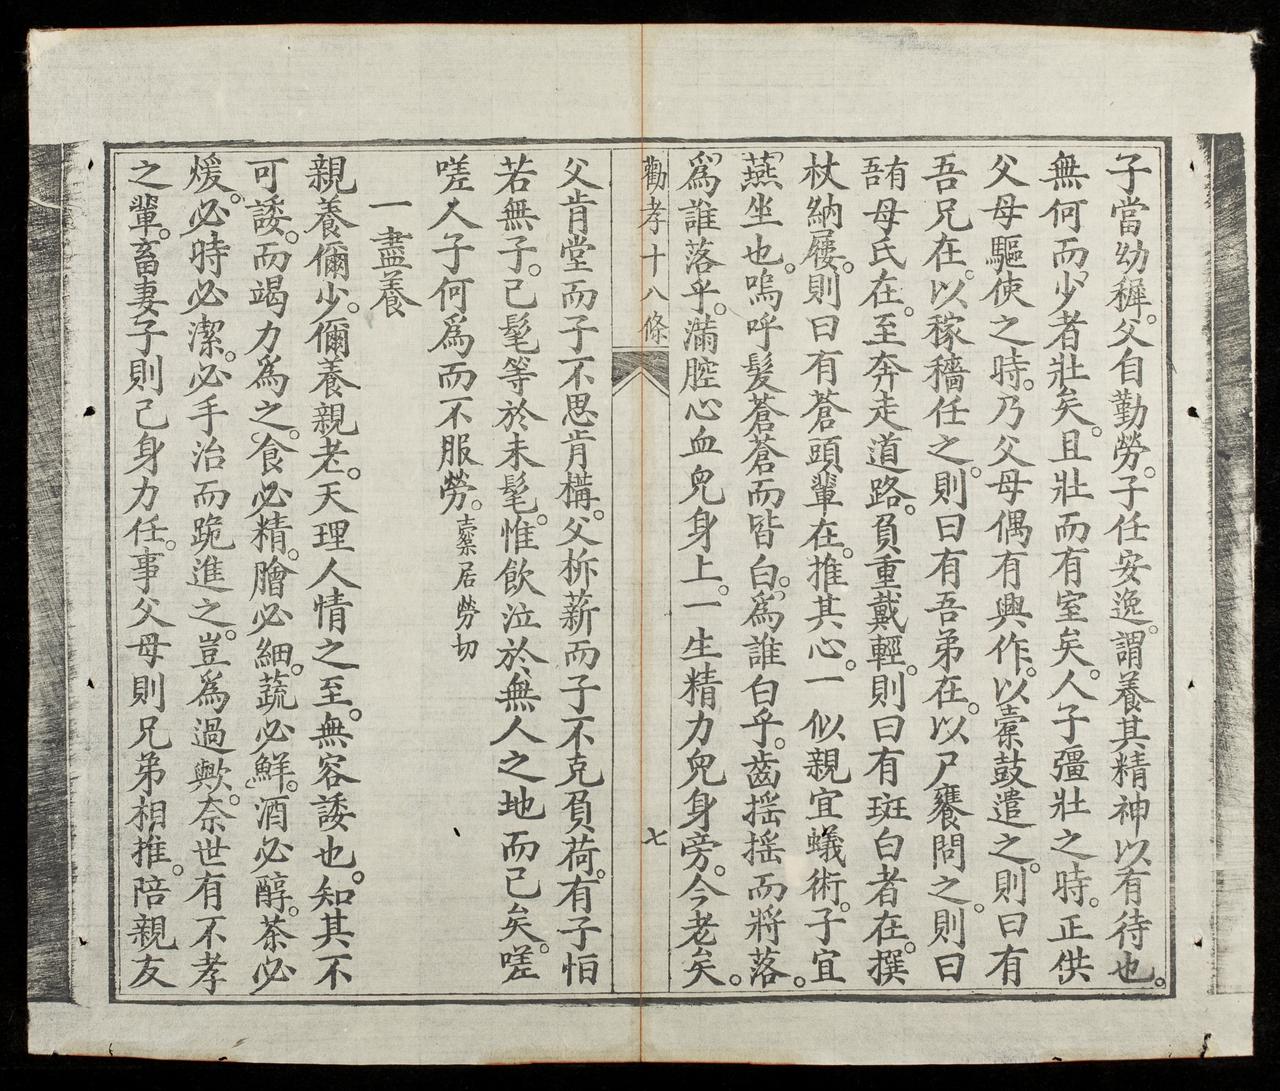 子當幼穉。父自勤勞。子任安逸。謂養其精神以有待也。
無何而少者壯矣。且壯而有室矣。人子彊壯之時。正供
父母驅使之時。乃父母偶有興作。以鼛鼓遣之。則曰有
吾兄在。以稼穡任之。則曰有吾弟在。以尸饔問之。則曰
有吾母氏在。至奔走道路。負重戴輕。則曰有斑白者在。撰
杖納屨。則曰有蒼頭輩在。推其心。一似親宜蟻術。子宜
燕坐也。嗚呼髮蒼蒼而皆白。爲誰白乎。齒搖搖而將落。
爲誰落乎。滿腔心血兒身上。一生精力兒身旁。今老矣。
勸孝十八條
七
父肯堂而子不思肯構。父柝薪而子不克負荷。有子怕
若無子。己髦等於未髦。惟飲泣於無人之地而已矣。嗟
嗟人子何爲而不服勞。鼛居勞切
一盡養
親養儞少。儞養親老。天理人情之至。無容諉也。知其不
可諉。而竭力爲之。食必精。膾必細。蔬必鮮。酒必醇。茶必
煖。必時必潔。必手治而跪進之。豈爲過歟。奈世有不孝
之輩。畜妻子則己身力任。事父母則兄弟相推。陪親友